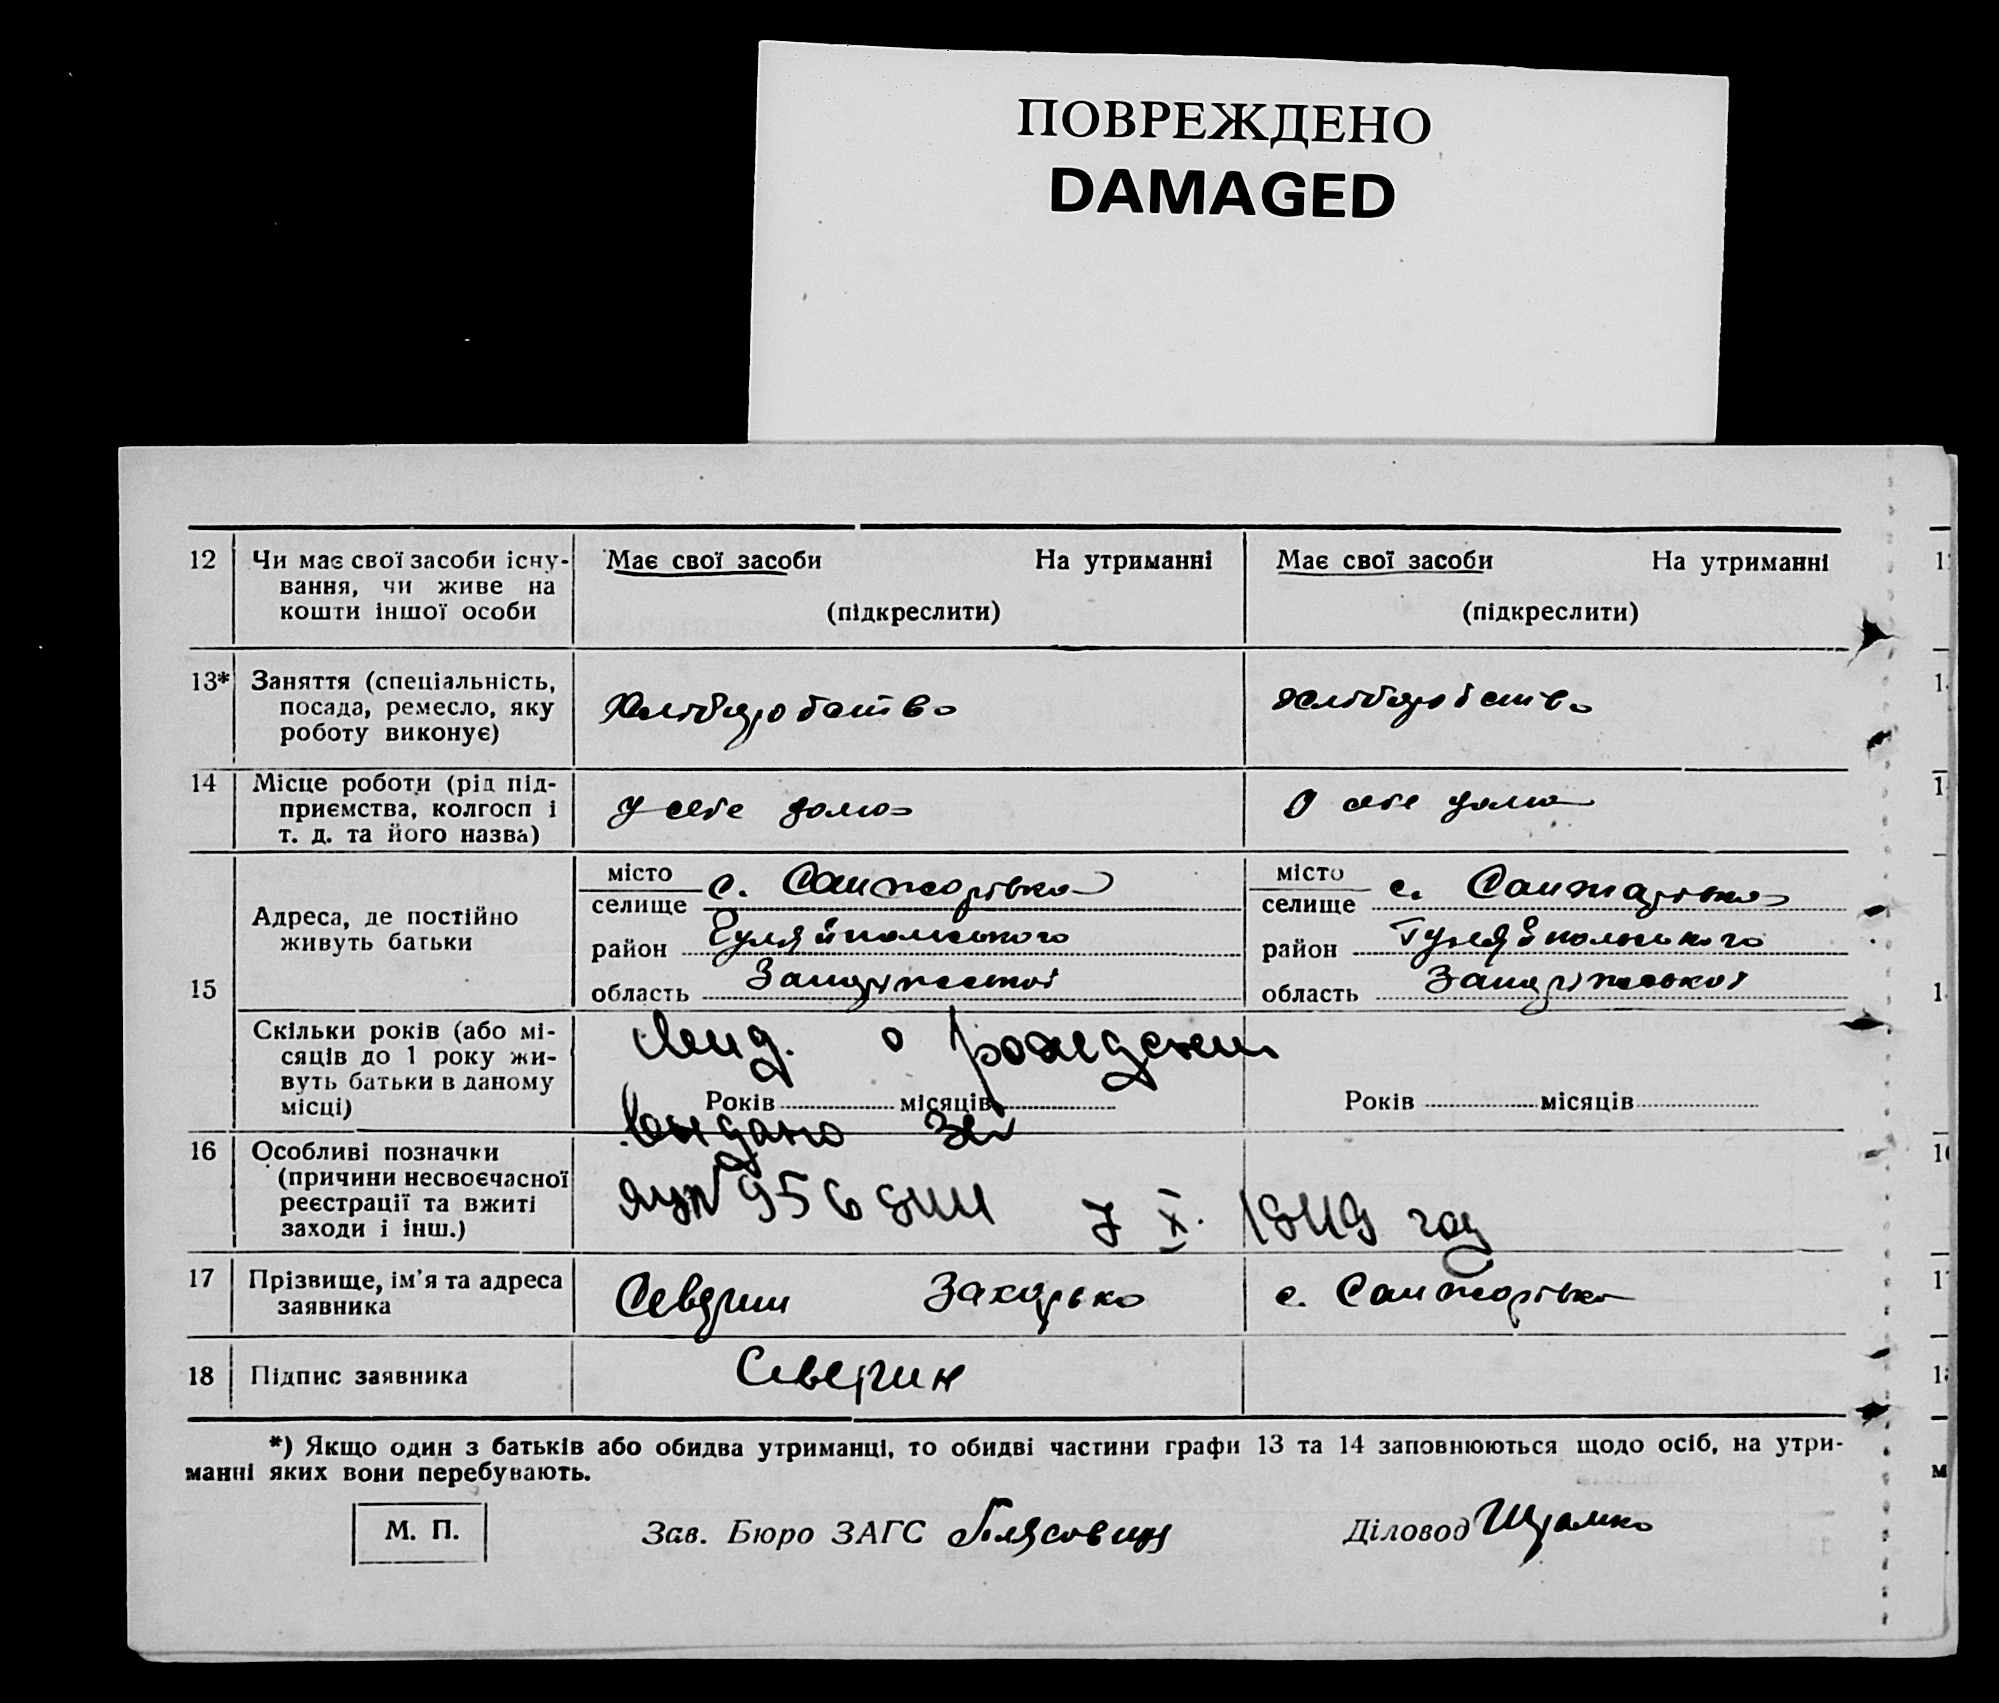 ПОВРЕЖДЕНО
DAMAGED
12 Чи має свої засоби існу-
вання, чи живе на
кошти іншої особи
Має свої засоби На утриманні
(підкреслити)
Має свої засоби На утриманні
(підкреслити)
13* Заняття (спеціальність,
посада, ремесло, яку
роботу виконує)
Хліборобство
Хліборобство
14 Місце роботи (рід під-
приємства, колгосп і
т. д. та його назва)
у себе дома
У себе дома
15
Адреса, де постійно
живуть батьки
місто
селище с. Санжарівка
район Гуляйпольського
область Запоріжської
місто
селище с. Санжарівка
район Гуляйпольського
область Запоріжської
Скільки років (або мі-
сяців до 1 року жи-
вуть батьки в даному
місці)
Років місяців
Років місяців
о рождении
выдано за
7 X. 1949 год
16 Особливі позначки
(причини несвоєчасної
реєстрації та вжиті
заходи і інш.)
17 Прізвище, ім’я та адреса
заявника
Северин Захарько с. Санжарівка
18 Підпис заявника
Северин
*) Якщо один з батьків або обидва утриманці, то обидві частини графи 13 та 14 заповнюються щодо осіб, на утри-
манні яких вони перебувають.
М. П.
Зав. Бюро ЗАГС
Діловод Шрамко